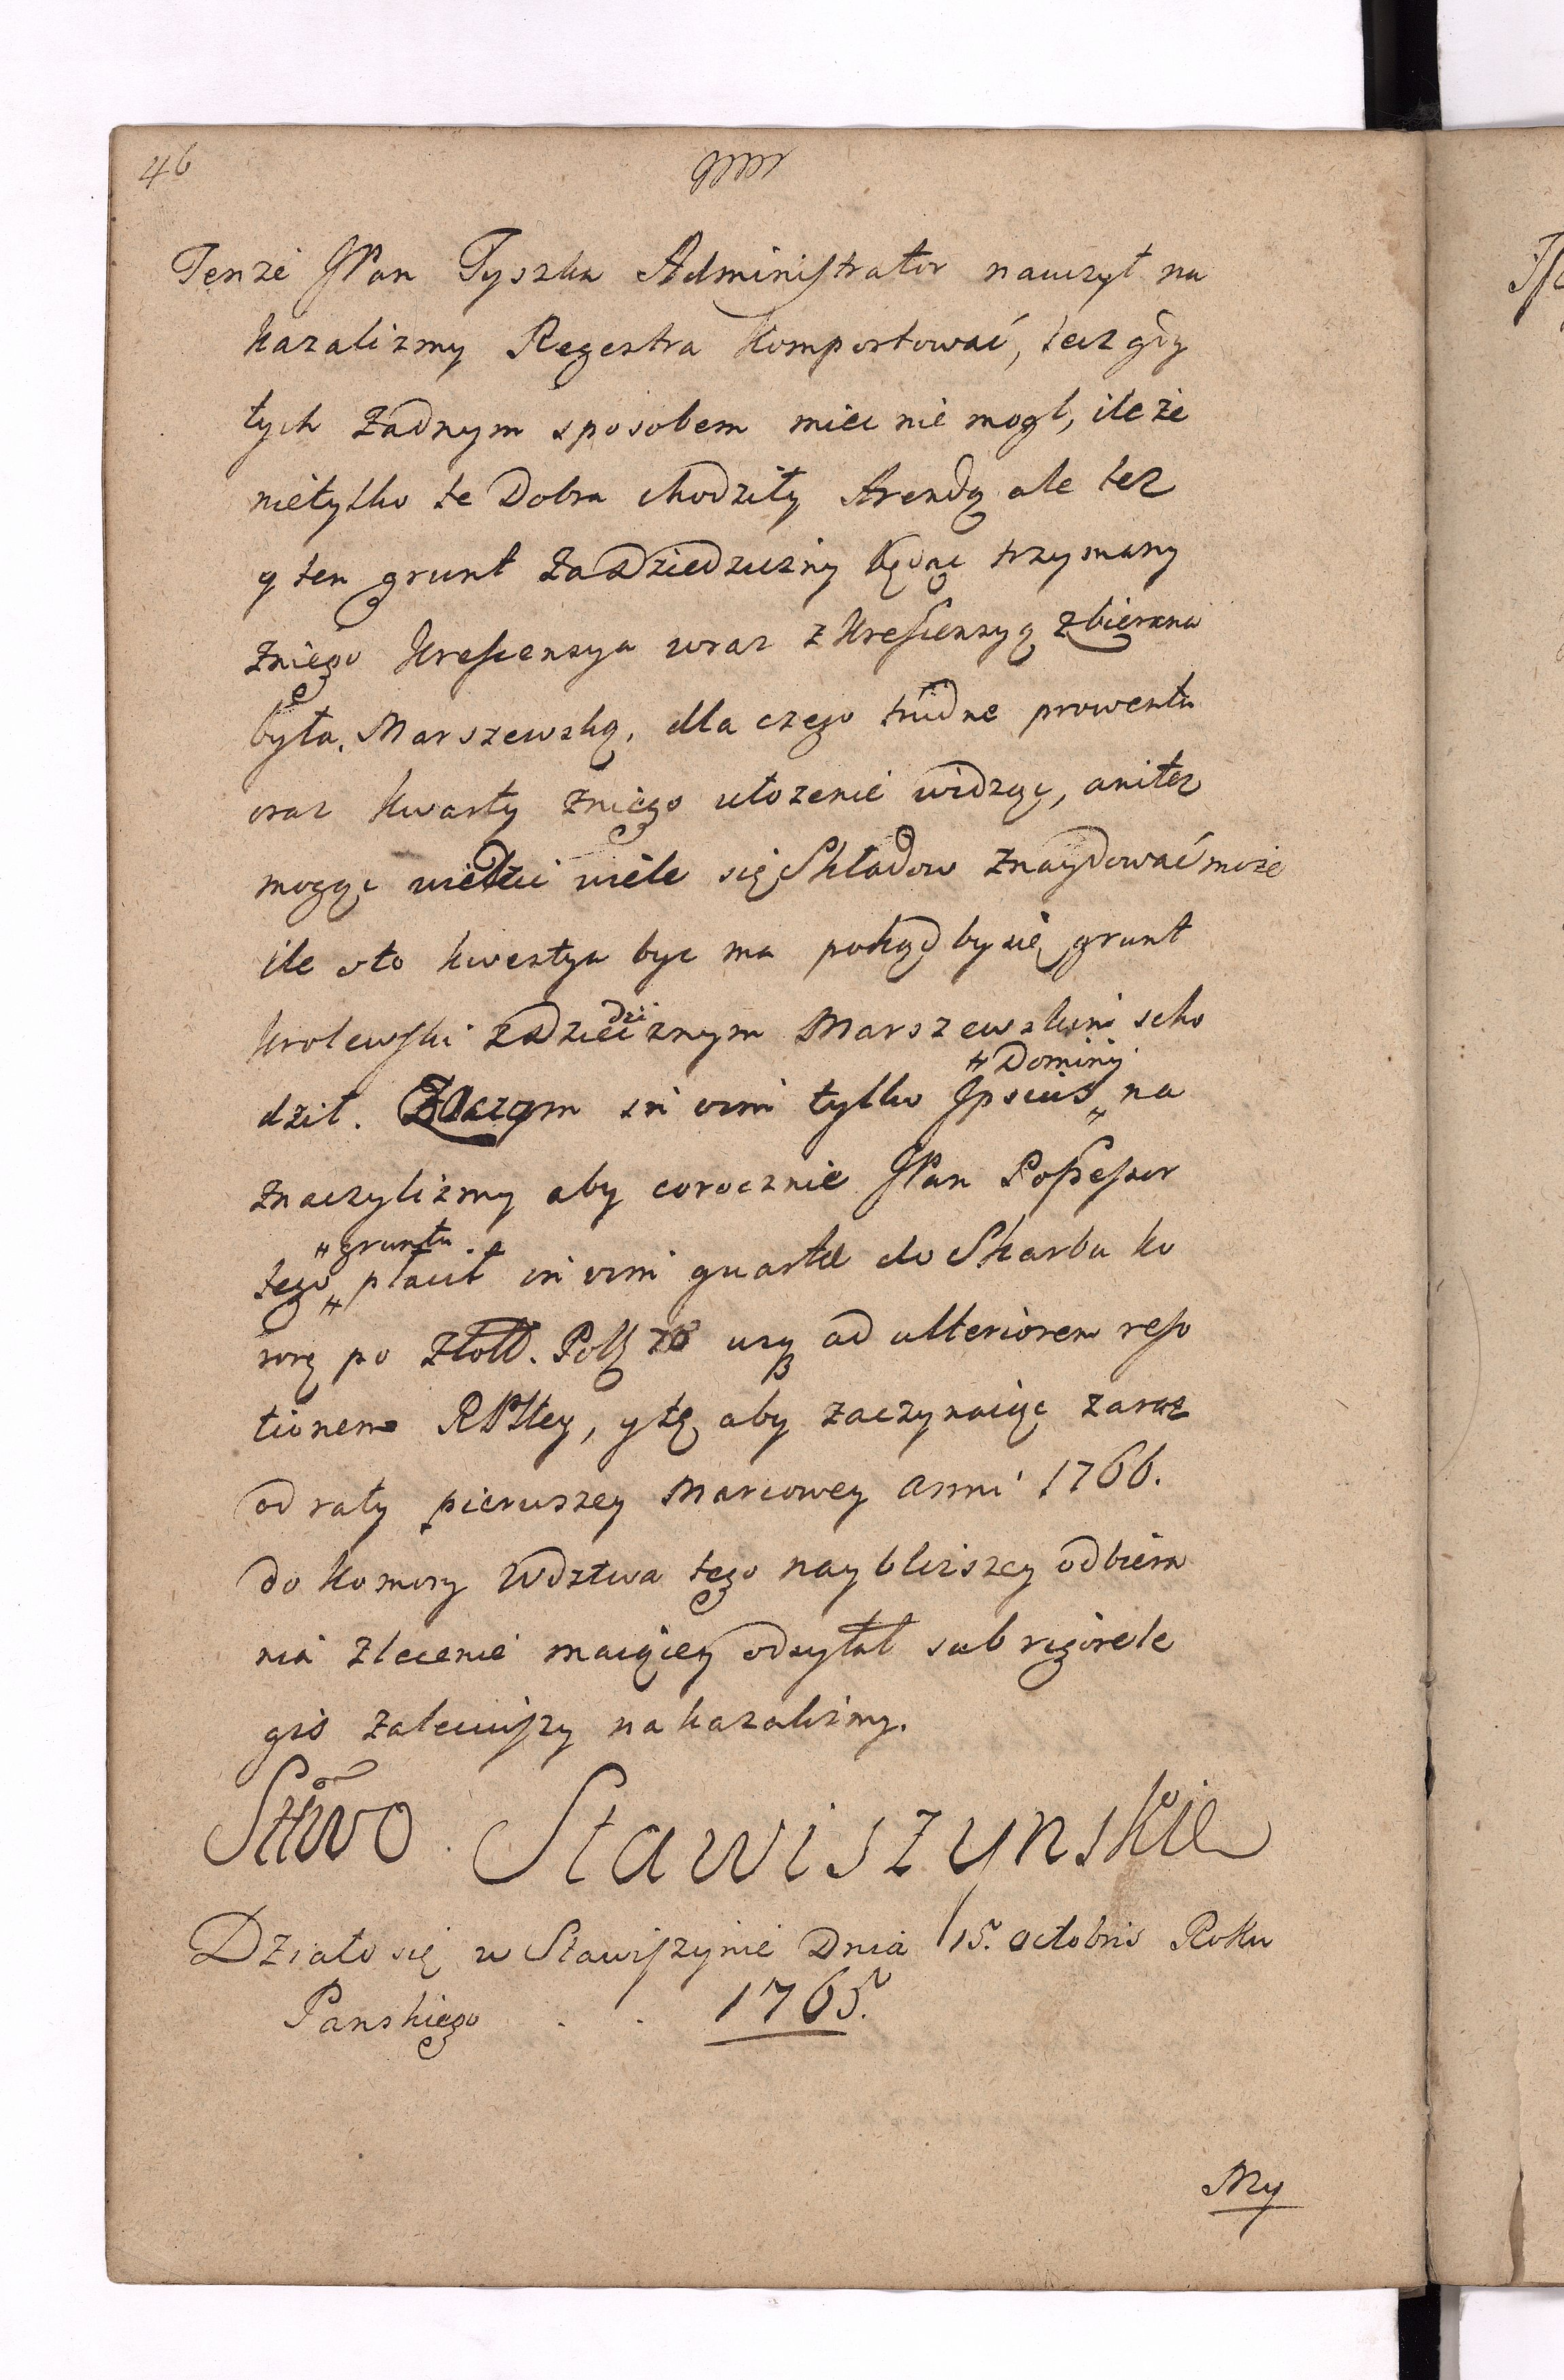 46
Tenże JPan Tyszka Administrator nauczył na
kazalismy Regestra Komportować, lecz gdy
tych Zadnym sposobem miec nie mogł, ile że
nietylko te Dobra chodziły Arendą ale tez
y ten grunt Za Dziedziczny będąc trzymany
Zniego Krescensya wraz z Krescensyą zbierana
była, Marszewską, dla czego trudne prowentu
oraz kwarty Zniego ułozenie widząc, anitez
mogąc wiedzic wiele się Składow Znaydować może
ile o to kwestya byc ma pokąd by się grunt
Krolewski z dziedzicznym Marszewskim scho
dził. Zaczym in vim tylko Ipsius " na
" Dominij
znaczylismy aby corocznie JPan Possessor
tego " płacił in vim quartæ do Skarbu Ko
" gruntu
ronę po Złott. Pols usq ad ulteriorem reso
tionem RPltey, y tę aby zaczynaiąc zaraz
od raty pierwszey Marcowey anni 1766.
do Komory Wdztwa tego naybliższey odbiera
nia Zlecenie maiącey odsyłał sub rigore le
gis zaleciwszy nakazalismy.
Sttwo Stawiszynskie
Działo się w Stawiszynie Dnia 15. octobris Roku
Panskiego . . 1765.
My